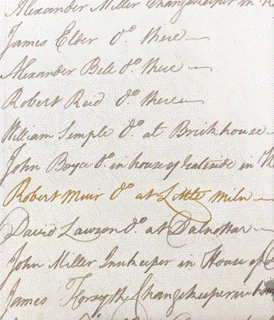 Alexander Miller Changekeeper in
James Elder Do. there
Alexander Bell Do. there
Robert Reid Do. there
William Semple Do. at Brickhouse
John Boyce Do. in house of
Robert Muir Do. at Little Miln
David Lawson Do. at Dalnottar
John Miller Innkeeper in House of
James Forsyth Changekeeper